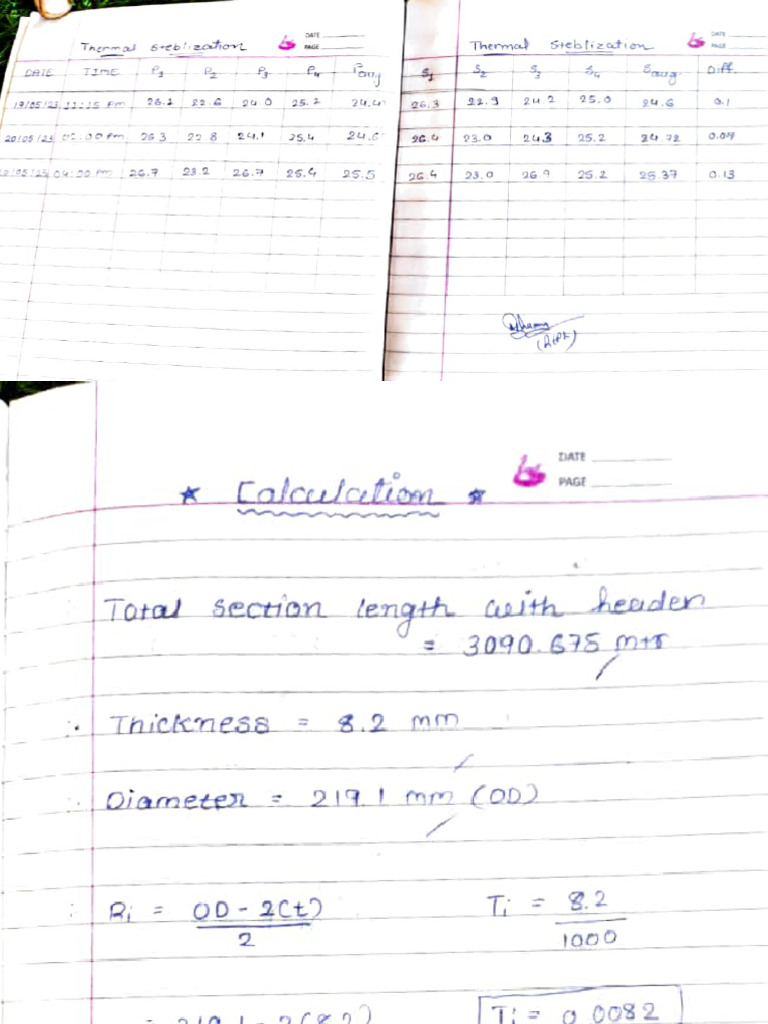 Thermal Steblization
DATE
PAGE
DATE TIME P1 P2 P3 P4 Pavg
19/05/23 11:15 Pm 26.2 22.6 24.0 25.2
20/05/23 02:00 Pm 26.3 22.8 24.1 25.4
04:00 Pm 26.7 23.2 26.7 25.4 25.5
Thermal Steblization
DATE
PAGE
S1 S2 S3 S4 Savg Diff.
26.3 22.9 24.2 25.0 24.6 0.1
26.4 23.0 24.3 25.2 24.72
26.4 23.0 26.9 25.2 25.37 0.13
DATE
PAGE
★ Calculation ★
Total section length with header
= 3090.675 mtr
∴ Thickness = 8.2 mm
∴ Diameter = 219.1 mm (OD)
∴ Ri = OD - 2(t) / 2
Ti = 8.2 / 1000
= 219.1 - 2(8.2)
Ti = 0.0082